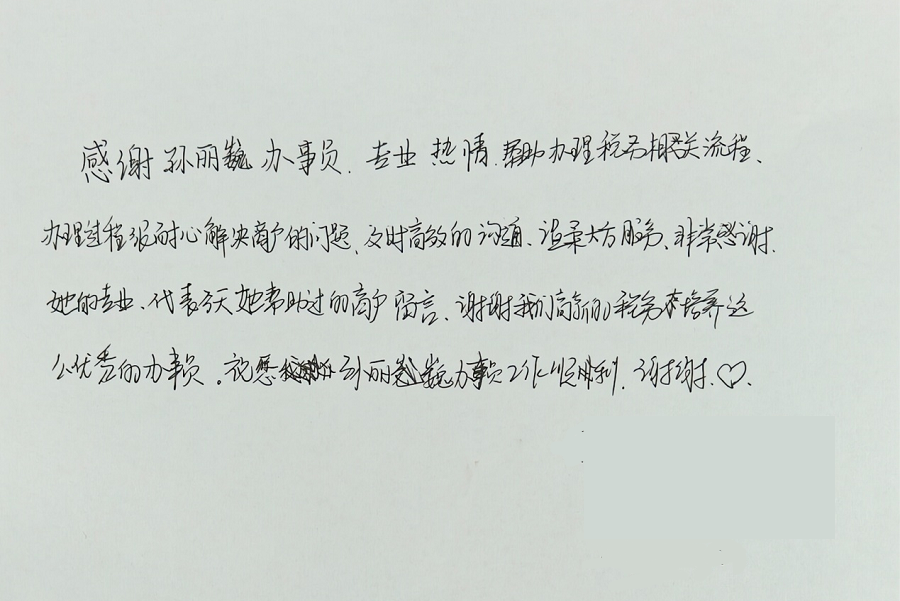 感谢孙丽巍办事员.专业热情.帮助办理税务相关流程、
办理过程很耐心解决商户的问题、及时高效的沟通、温柔大方服务、非常感谢.
她的专业、代表今天她帮助过的商户留言、谢谢我们高新的税务培养这
么优秀的办事员。祝愿孙丽巍办事员工作顺利.谢谢.♡.